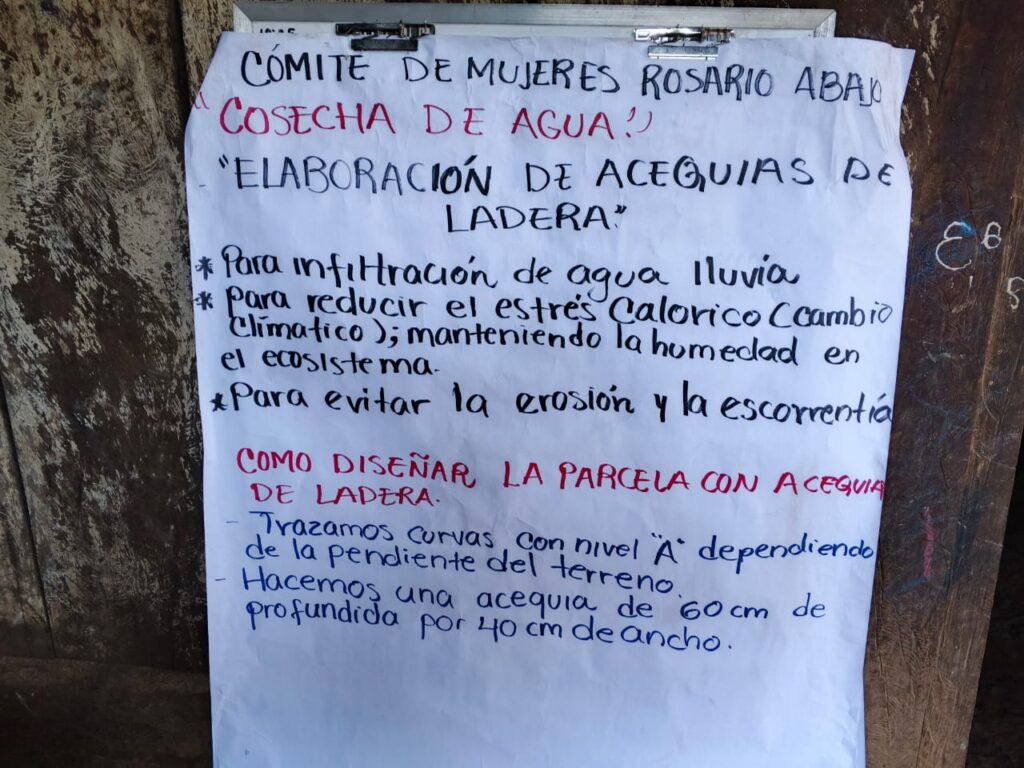 CÓMITE DE MUJERES ROSARIO ABAJO
"COSECHA DE AGUA!"
- "ELABORACIÓN DE ACEQUIAS DE
LADERA."
* Para infiltración de agua lluvia
* Para reducir el estrés Calorico (cambio
Clímatico); manteniendo la humedad en
el ecosistema.
* Para evitar la erosión y la escorrentía
COMO DISEÑAR LA PARCELA CON ACEQUIA
DE LADERA.
- Trazamos curvas con nivel "A" dependiendo
de la pendiente del terreno.
- Hacemos una acequia de 60 cm de
profundida por 40 cm de ancho.